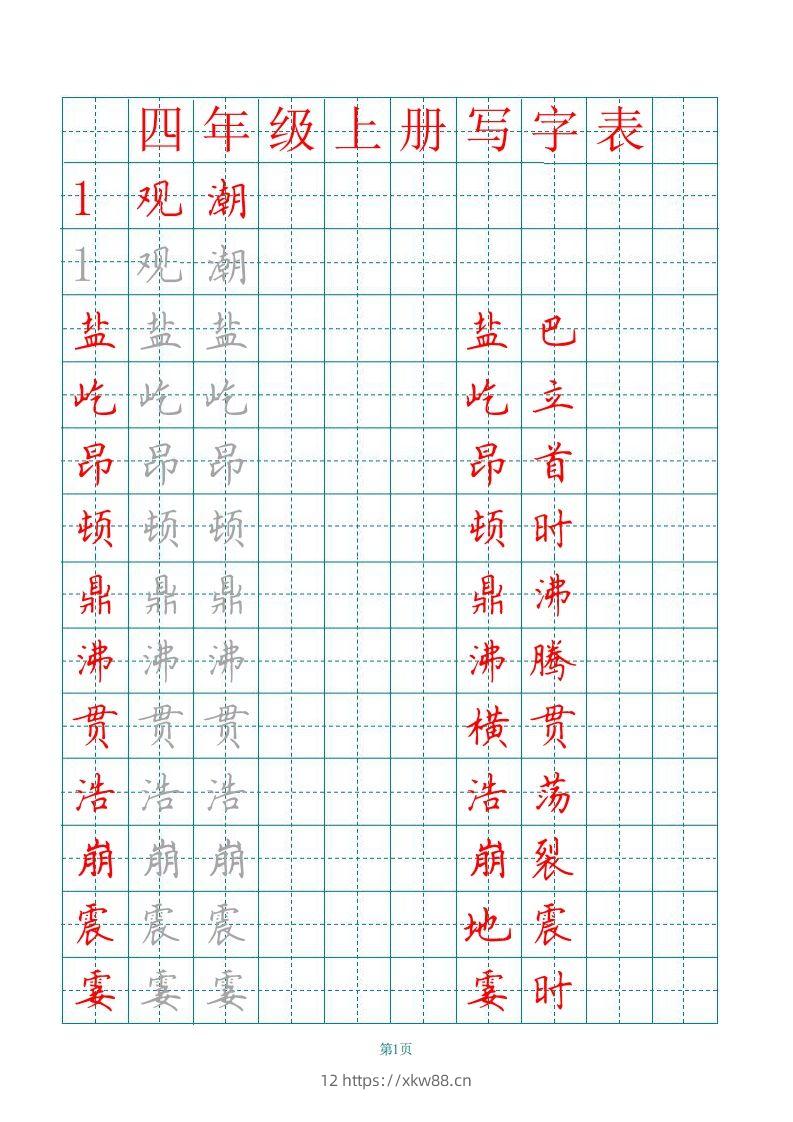 四年级上册写字表
1 观潮
1 观潮
盐 盐 盐 盐巴
屹 屹 屹 屹立
昂 昂 昂 昂首
顿 顿 顿 顿时
鼎 鼎 鼎 鼎沸
沸 沸 沸 沸腾
贯 贯 贯 横贯
浩 浩 浩 浩荡
崩 崩 崩 崩裂
震 震 震 地震
霎 霎 霎 霎时
第1页
12 https://xkw88.cn